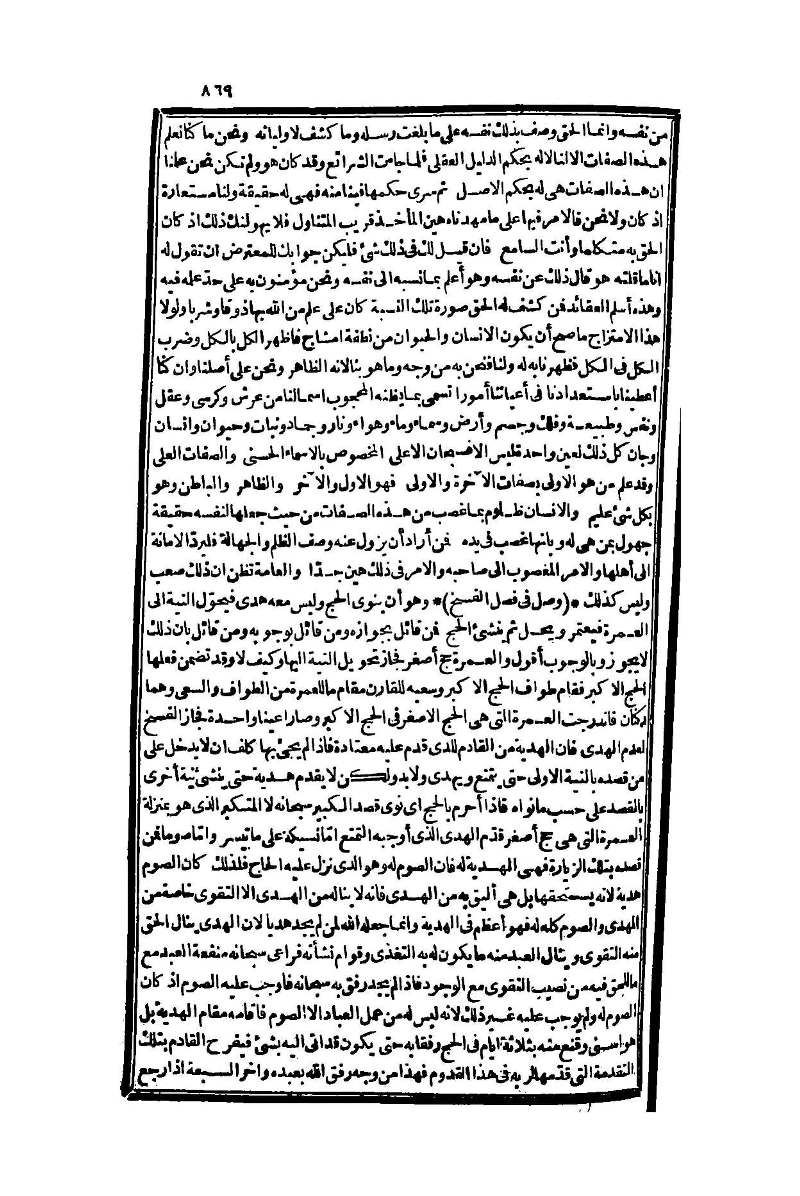 ٨٦٩
من نفسه وانما الحق وصف بذلك نفسه على ما بلغت رسله وما كشف لاوليائه ونحن ما كنا نعلم
هذه الصفات الا لنا لا له بحكم الدليل العقلى فلما جاءت الشرائع وقد كان هو ولم نكن نحن علمنا
ان هذه الصفات هى له بحكم الاصل ثم سرى حكمها فينا منه فهى له حقيقة ولنا مستعارة
اذ كان ولا نحن فالامر فيها على ما مهدناه هين المأخذ قريب المتناول فلا يهولنك ذلك اذ كان
الحق به متكلما وأنت السامع فان قيل لك فى ذلك شئ فليكن جوابك للمعترض ان تقول له
انا ما قلته هو قال ذلك عن نفسه وهو أعلم بما نسبه الى نفسه ونحن مؤمنون به على حد علمه فيه
وهذه أسلم العقائد فمن كشف له الحق صورة تلك النسبة كان على علم من الله بها ذوقا وشربا ولولا
هذا الامتزاج ما صح أن يكون الانسان والحيوان من نطفة امشاج فاظهر الكل بالكل وضرب
الكل فى الكل فظهرنا به له ولنا فنحن به من وجه وما هو بنا لانه الظاهر ونحن على أصلنا وان كنا
أعطينا باستعدادنا فى أعياننا أمورا تسمى بما يظنه المحجوب اسما لنا من عرش وكرسى وعقل
ونفس وطبيعة وفلك وجسم وأرض وسماء وماء وهواء ونار وجماد ونبات وحيوان وانسان
وجان كل ذلك لعين واحد ليس الا فسبحان الاعلى المخصوص بالاسماء الحسنى والصفات العلى
وقد علم من هو الاولى بصفات الآخرة والاولى فهو الاول والآخر والظاهر والباطن وهو
بكل شئ عليم والانسان ظلوم بما غصب من هذه الصفات من حيث جعلها لنفسه حقيقة
جهول بمن هى له وبانها غصب فى يده فمن أراد أن يزول عنه وصف الظلم والجهالة فليرد الامانة
الى أهلها والامر المغصوب الى صاحبه والامر فى ذلك هين جدا والعامة تظن ان ذلك صعب
وليس كذلك *(وصل فى فصل الفسخ)* وهو أن ينوى الحج وليس معه هدى فيحول النية الى
العمرة فيعتمر ويحل ثم ينشئ الحج فمن قائل بجوازه ومن قائل بوجوبه ومن قائل بان ذلك
لا يجوز وبالوجوب أقول والعمرة حج أصغر فجاز تحويل النية اليها وكيف لا وقد تضمن فعلها
الحج الاكبر فقام طواف الحج الاكبر وسعيه للقارن مقام ما للعمرة من الطواف والسعى وهما
ركنان فاندرجت العمرة التى هى الحج الاصغر فى الحج الاكبر وصارا عينا واحدة فجاز الفسخ
لعدم الهدى فان الهدية من القادم للذى قدم عليه معتادة فاذا لم يجئ بها كلف ان لا يدخل على
من قصده بالنية الاولى حتى يتمتع ويهدى ولا بد ولكن لا يقدم هدية حتى ينشئ نية أخرى
بالقصد على حسب ما نواه فاذا أحرم بالحج اى نوى قصد الكبير سبحانه لا المتكبر الذى هو بمنزلة
العمرة التى هى حج أصغر قدم الهدى الذى أوجبه التمتع اما نسيكة على ما تيسر واما صوما فمن
قصده بتلك الزيارة فهى الهدية له فان الصوم له وهو الذى نزل عليه الحاج فلذلك كان الصوم
هدية لانه يستحقها بل هى أليق به من الهدى فانه لا يناله من الهدى الا التقوى خاصة من
المهدى والصوم كله له فهو أعظم فى الهدية وانما جعله الله لمن لم يجد هديا لان الهدى ينال الحق
منه التقوى وينال العبد منه ما يكون له به التغذى وقوام نشأته فراعى سبحانه منفعة العبد مع
ما للحق فيه من نصيب التقوى مع الوجود فاذا لم يجد رفق به سبحانه فاوجب عليه الصوم اذ كان
الصوم له ولم يوجب عليه غير ذلك لانه ليس له من عمل العباد الا الصوم فاقامه مقام الهدية بل
هو اسنى وقنع منه بثلاثة ايام فى الحج رفقا به حتى يكون قد اتى اليه بشئ فيفرح القادم بتلك
التقدمة التى قدمها لربه فى هذا القدوم فهذا من وجه رفق الله بعبده واخر السبعة اذا رجع